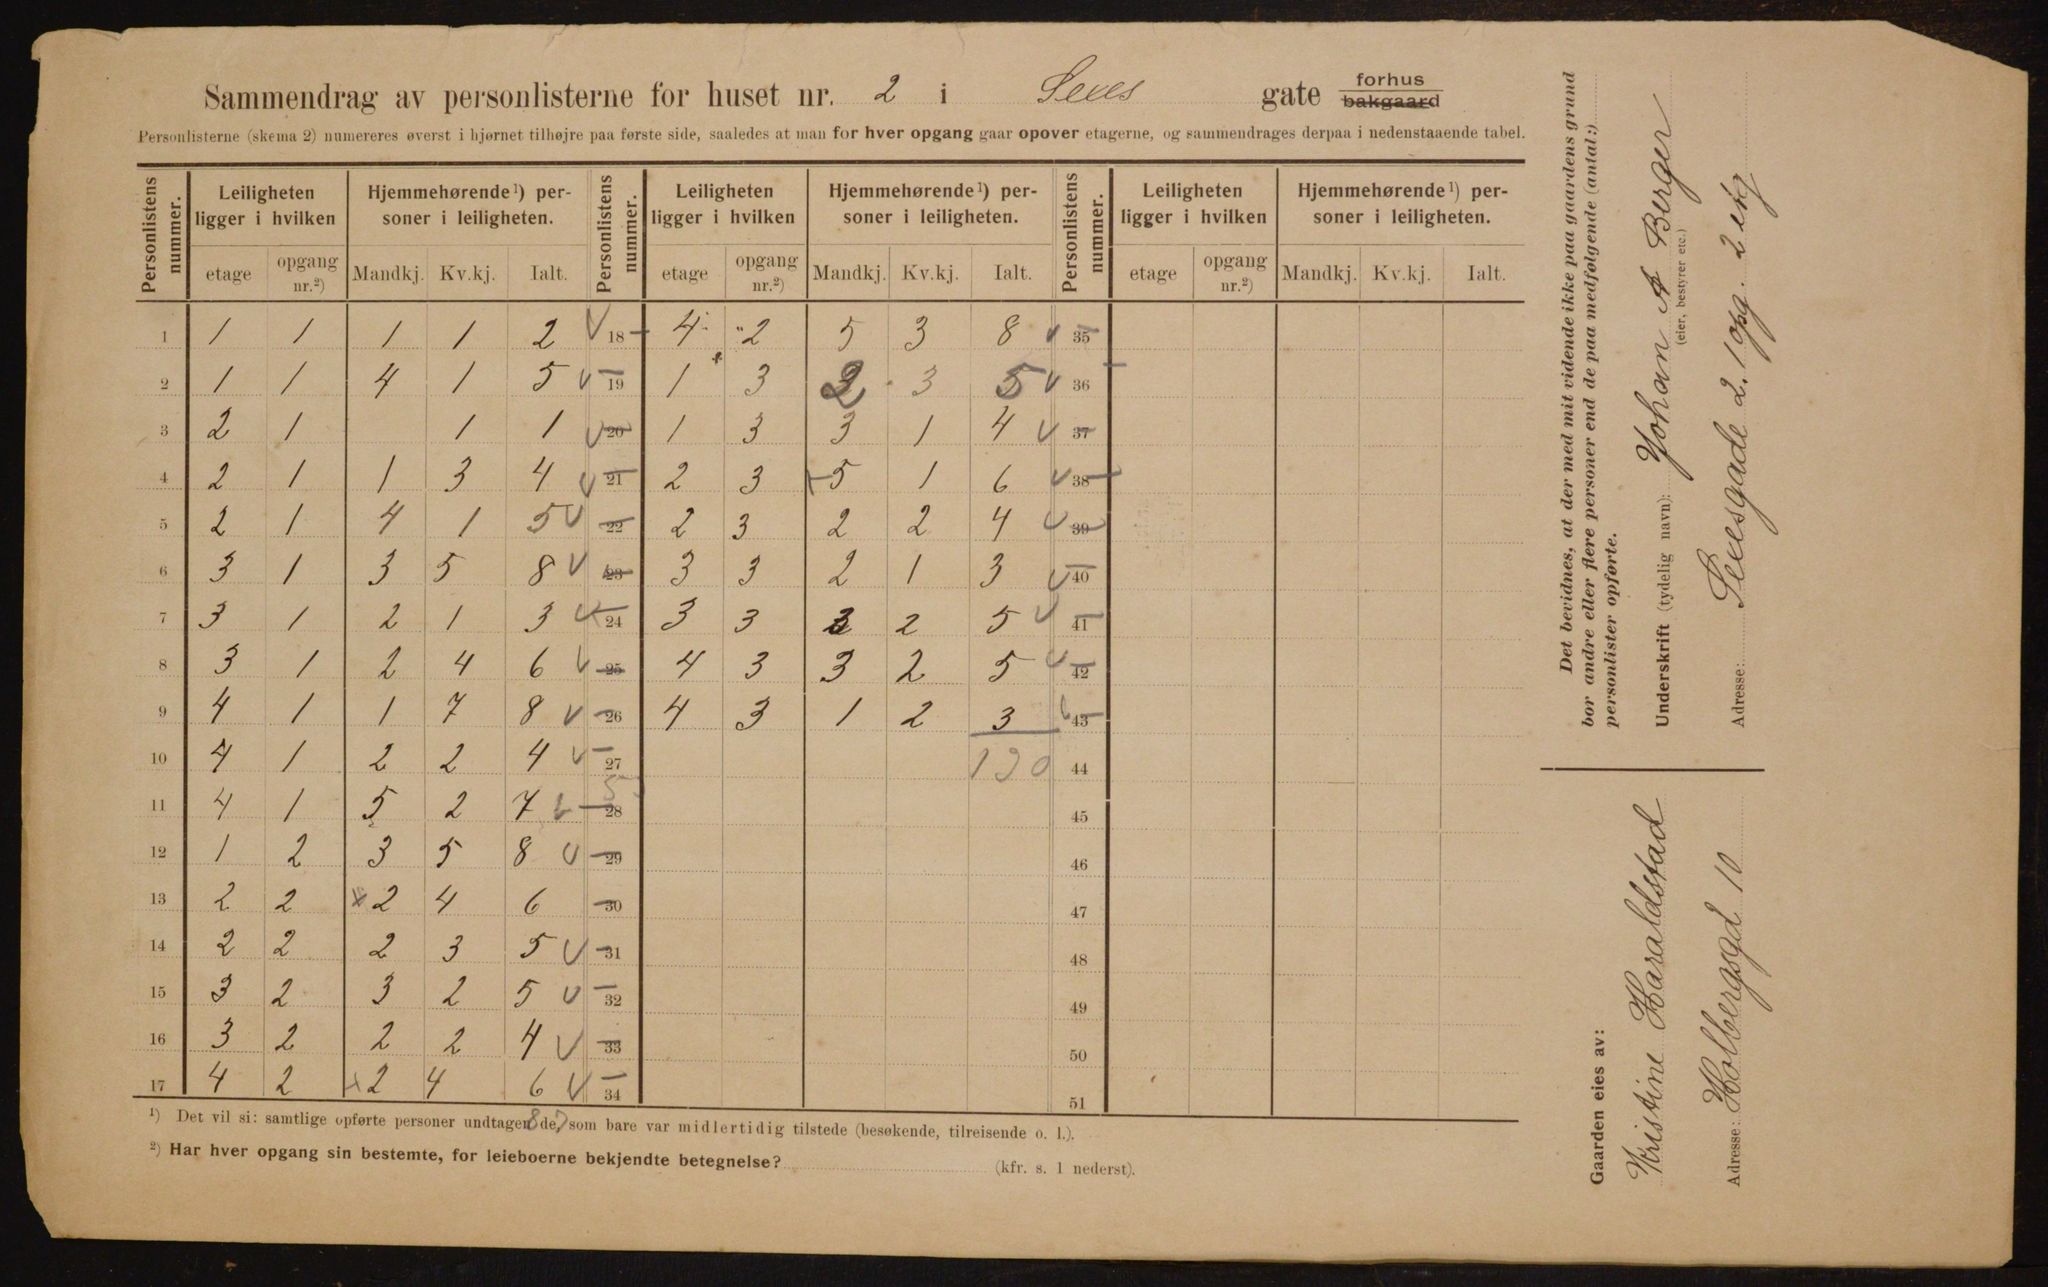 Sammendrag av personlisterne for huset nr. 2 i Seves gate forhus bakgaard
Personlisterne (skema 2) numereres øverst i hjørnet tilhøjre paa første side, saaledes at man for hver opgang gaar opover etagerne, og sammendrages derpaa i nedenstaaende tabel.
Personlistens nummer. Leiligheten ligger i hvilken Hjemmehørende¹) personer i leiligheten. Personlistens nummer. Leiligheten ligger i hvilken Hjemmehørende¹) personer i leiligheten. Personlistens nummer. Leiligheten ligger i hvilken Hjemmehørende¹) personer i leiligheten.
etage opgang nr.²) Mandkj. Kv.kj. Ialt. etage opgang nr.²) Mandkj. Kv.kj. Ialt. etage opgang nr.²) Mandkj. Kv.kj. Ialt.
1 1 1 1 1 2 18 4 2 5 3 8 35
2 1 1 4 1 5 19 1 3 2 3 5 36
3 2 1 1 1 20 1 3 3 1 4 37
4 2 1 1 3 4 21 2 3 5 1 6 38
5 2 1 4 1 5 22 2 3 2 2 4 39
6 3 1 3 5 8 23 3 3 2 1 3 40
7 3 1 2 1 3 24 3 3 3 2 5 41
8 3 1 2 4 6 25 4 3 3 2 5 42
9 4 1 1 7 8 26 4 3 1 2 3 43
10 4 1 2 2 4 27 130 44
11 4 1 5 2 7 28 45
12 1 2 3 5 8 29 46
13 2 2 2 4 6 30 47
14 2 2 2 3 5 31 48
15 3 2 3 2 5 32 49
16 3 2 2 2 4 33 50
17 4 2 2 4 6 34 51
87
¹) Det vil si: samtlige opførte personer undtagen de, som bare var midlertidig tilstede (besøkende, tilreisende o. l.).
²) Har hver opgang sin bestemte, for leieboerne bekjendte betegnelse? (kfr. s. 1 nederst).
Det bevidnes, at der med mit vidende ikke paa gaardens grund
bor andre eller flere personer end de paa medfølgende (antal:)
personlister opførte.
Underskrift (tydelig navn): Johan A Berger
(eier, bestyrer etc.)
Adresse: Sevesgade 2. 1 opg. 2 etg
Gaarden eies av:
Kristine Haraldstad
Adresse: Holbergsgd 10